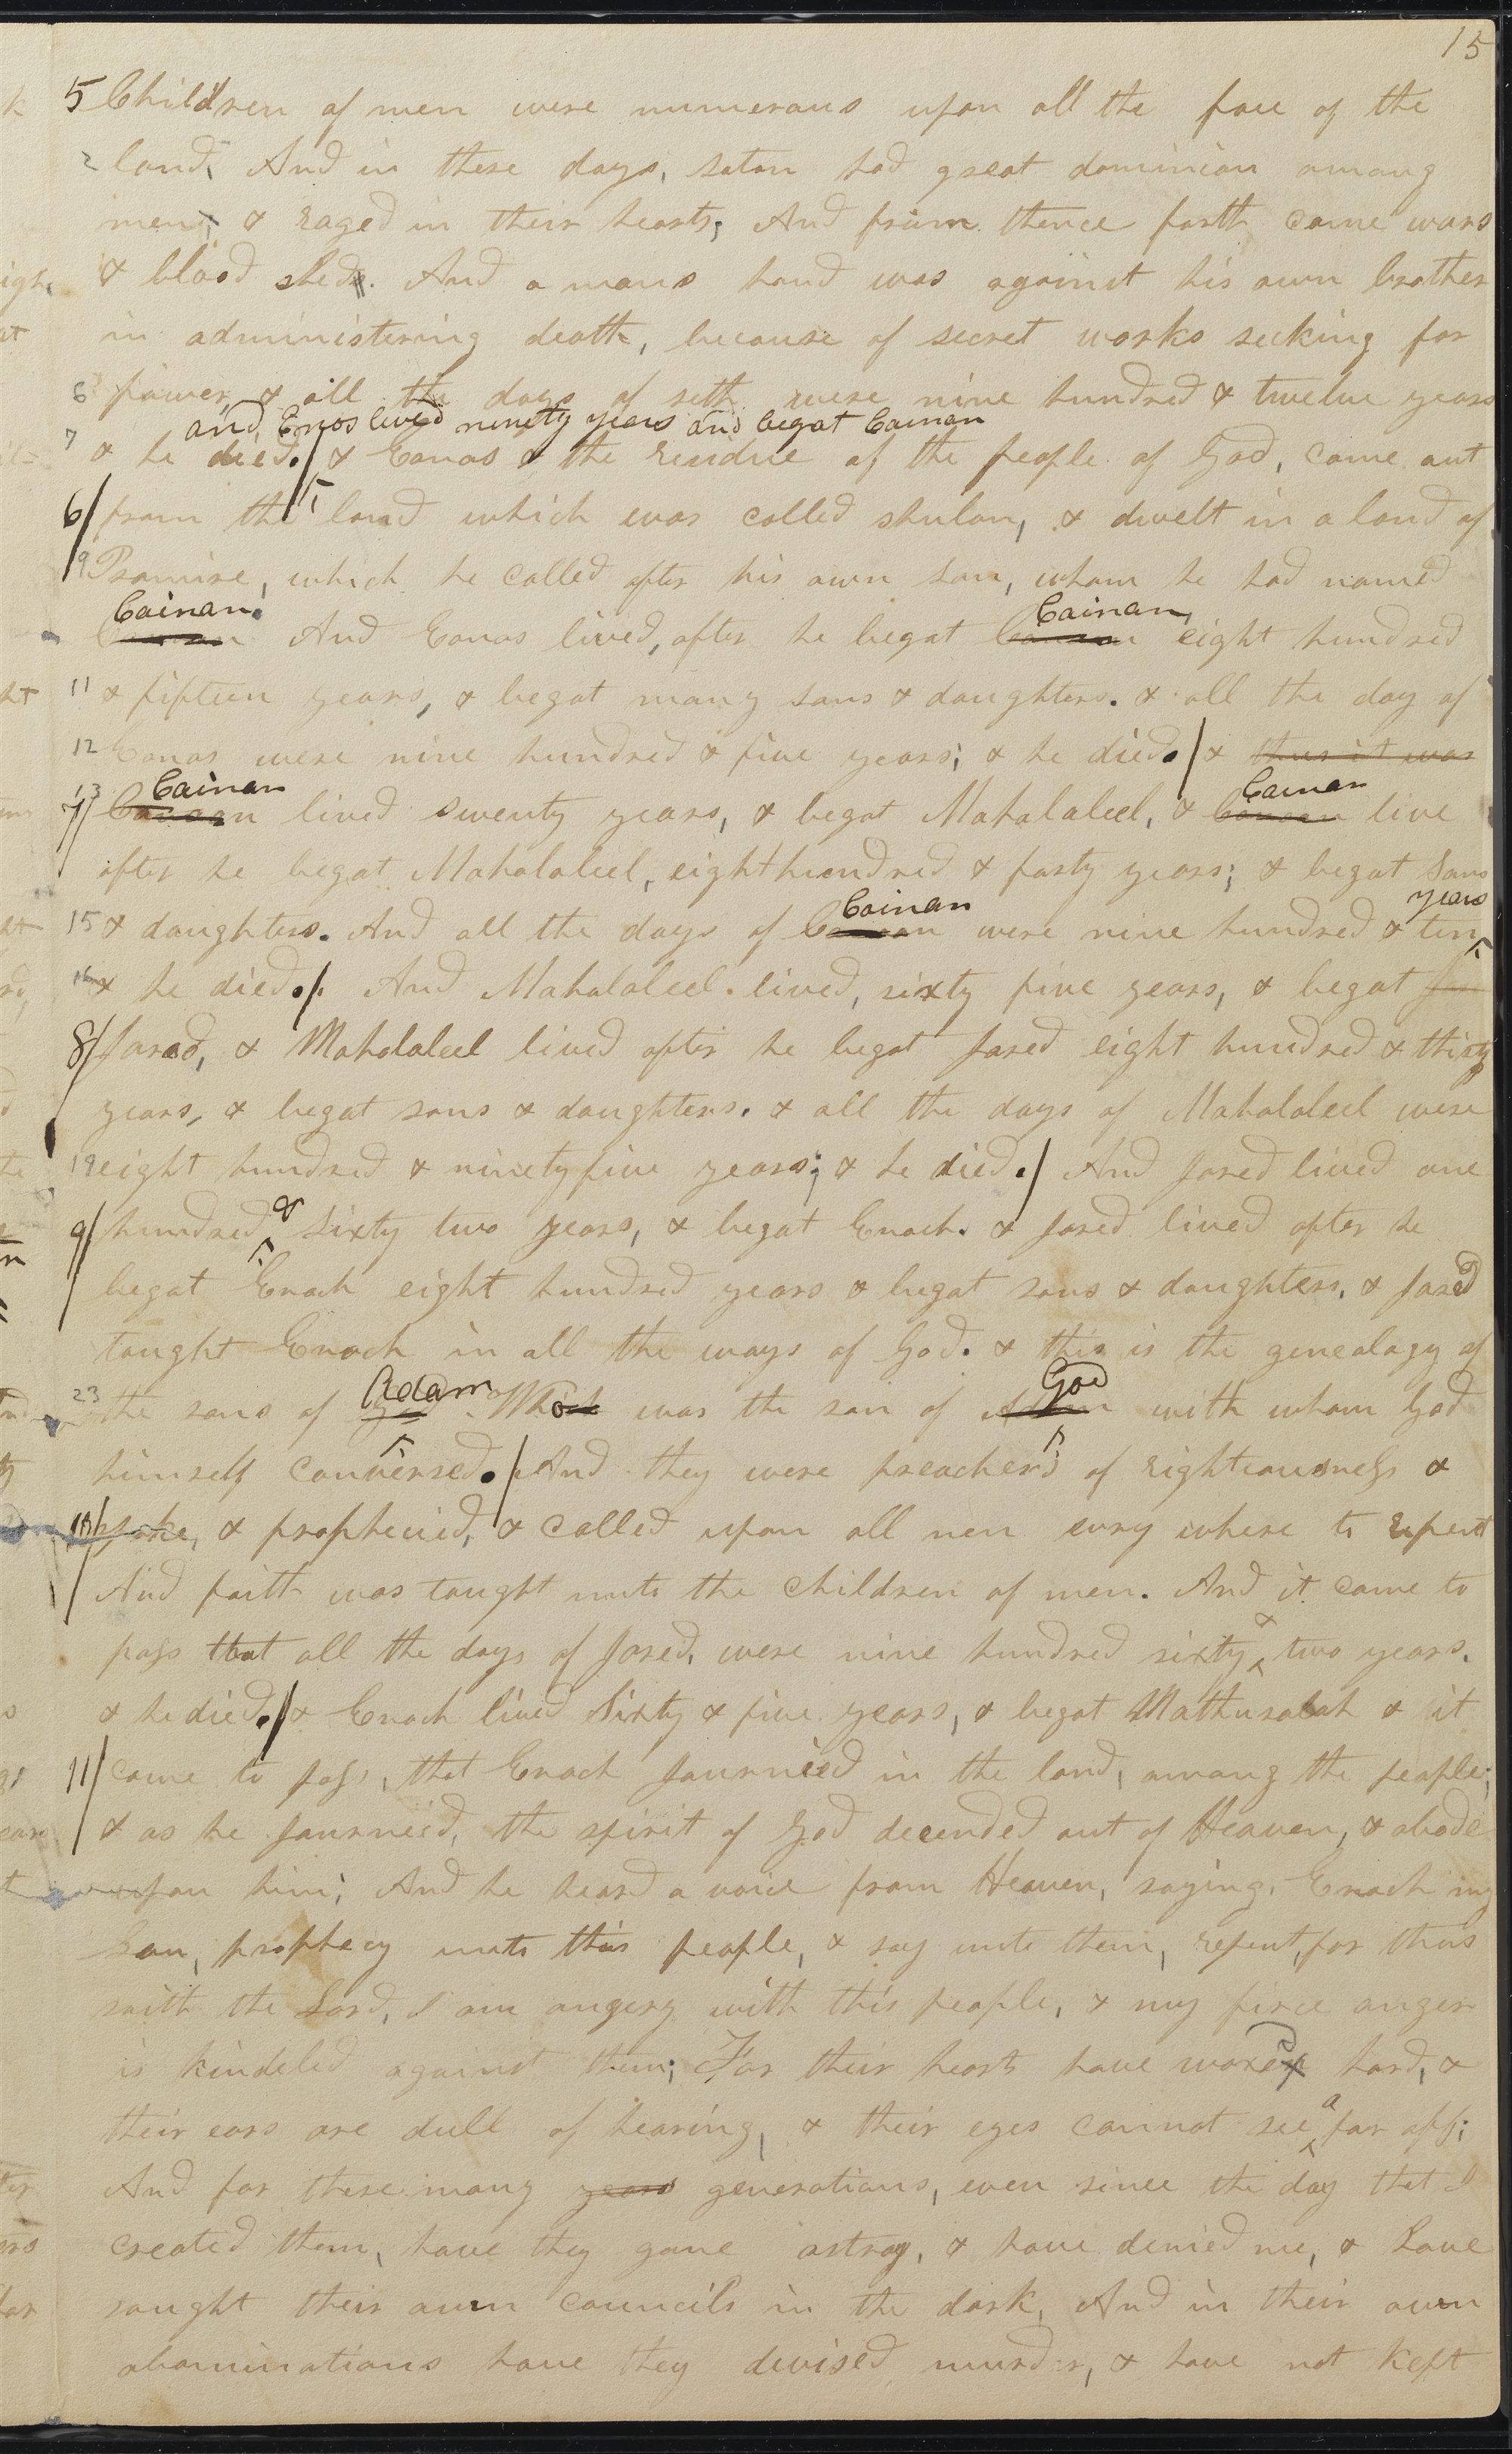 15
5 Children of men were numerous upon all the face of the
2 land, And in these days, satan had great dominion among
men, & raged in their hearts; And from thence forth came wars
& blood shed. And a mans hand was against his own brother
in administering death, because of secret works seeking for
6 power, & all the days of seth were nine hundred & twelve years
and, Enos lived ninety years and begat Cainan
7 & he died./ & Eanos & the residue of the people of God, came out
6/ from the land which was called shulon, & dwelt in a land of
9 Promise, which he called after his own son, whom he had named
Cainan. Cainan,
Canaan And Eanos lived, after he begat Canaan eight hundred
11 & fifteen years, & begat many sons & daughters. & all the day of
12 Eanos were nine hundred & five years; & he died./ & thus it was
13 Cainan Cainan
7/ Canaan lived swenty years, & begat Mahalaleel, & Canaan live
after he begat Mahalaleel, eight hundred & forty years; & begat Sons
Cainan years
15 & daughters. And all the days of Canaan were nine hundred & ten
16 & he died./. And Mahalaleel lived, sixty five years, & begat Jar
8/ Jared, & Mahalaleel lived after he begat Jared eight hundred & thirty
years, & begat sons & daughters. & all the days of Mahalaleel were
19 eight hundred & ninety five years; & he died./ And Jared lived one
&
9/ hundred sixty two years, & begat Enoch. & Jared lived after he
begat Enoch eight hundred years & begat sons & daughters. & Jared
taught Enoch in all the ways of God. & this is the genealogy of
Adam God
23 the sons of God Who was the son of Adam with whom God
himself conversed./ And they were preachers of righteousness &
10/ spake, & prophecied, & called upon all men evry where to repent
And faith was taught unto the children of men. And it came to
&
pass that all the days of Jared, were nine hundred sixty two years.
& he died./ & Enoch lived Sixty & five years, & begat Mathusalah & it
11/ came to pass, that Enoch Journied in the land, among the people;
& as he Journied, the spirit of God decended out of Heaven, & abode
upon him; And he heard a voice from Heaven, saying, Enoch my
Son, prophecy unto this people, & say unto them, repent, for thus
saith the Lord, I am angery with this people, & my firce anger
is kindeled against them; For their hearts have waxed hard, &
a
their ears are dull of hearing, & their eyes cannot see far off;
And for these many years generations, even since the day that I
created them, have they gone astray, & have denied me, & have
sought their own councils in the dark, And in their own
abominations have they devised murder, & have not kept